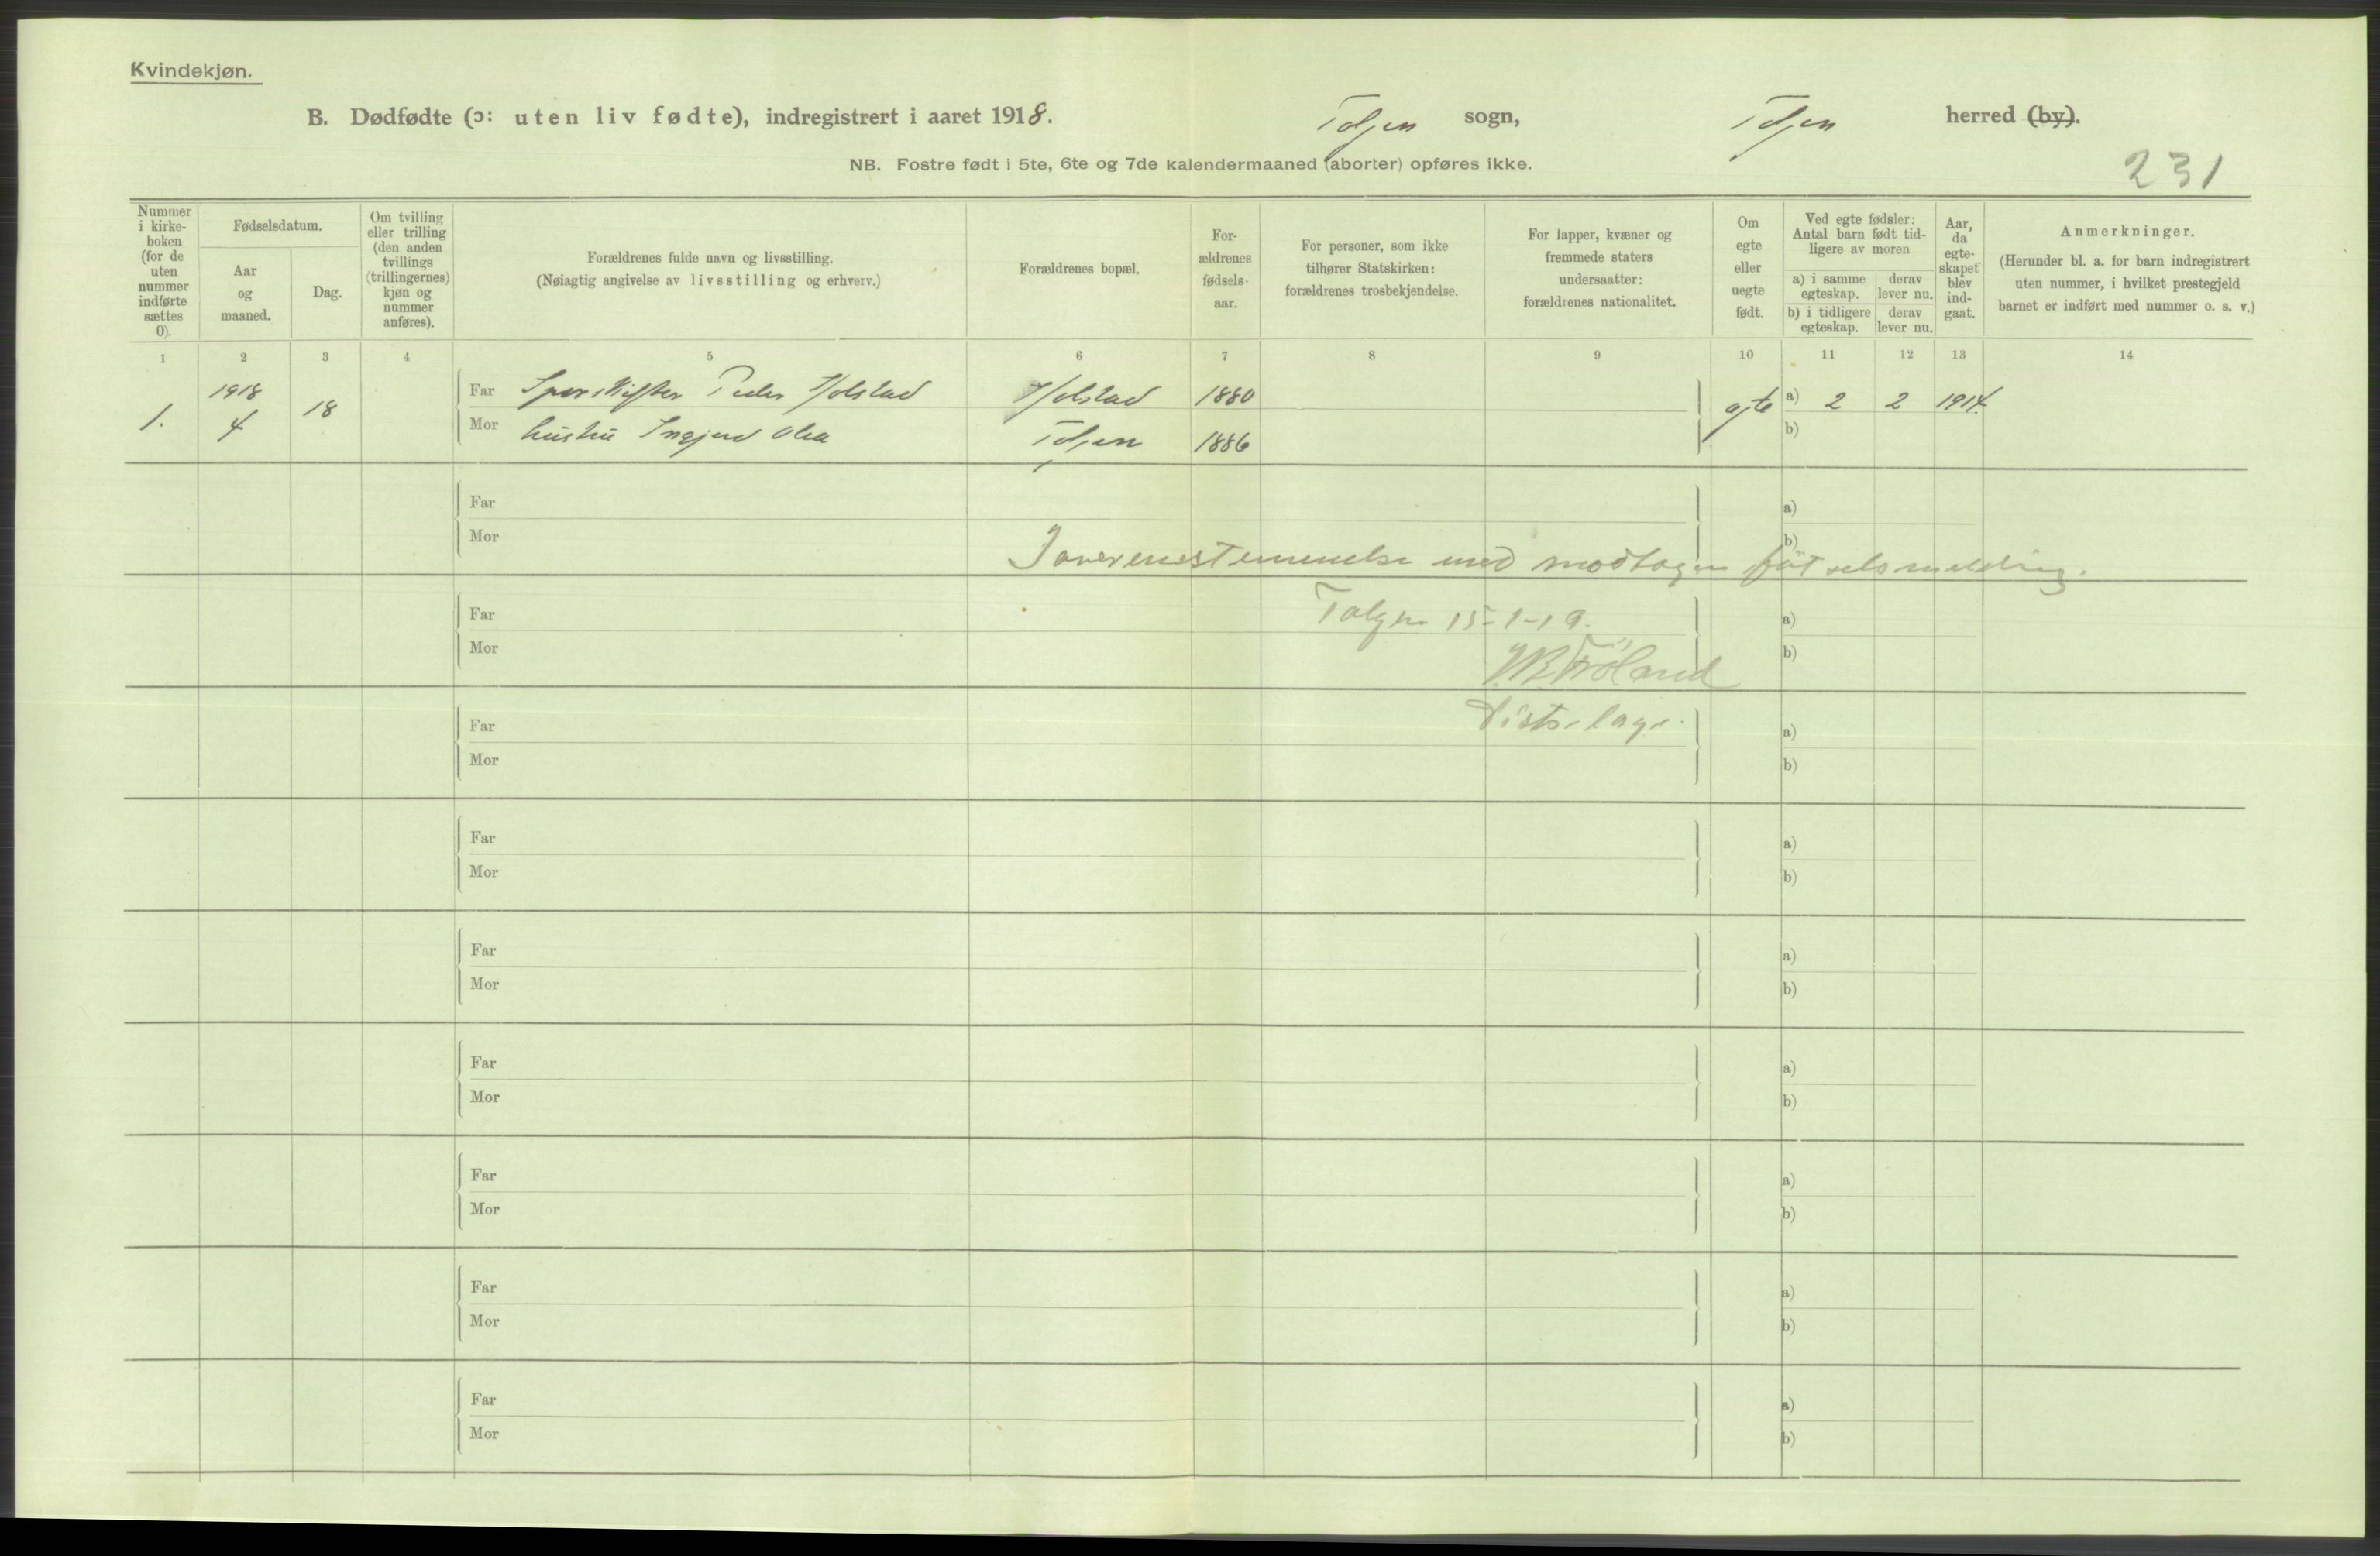 Kvindekjøn.
B. Dødfødte (ɔ: uten liv fødte), indregistrert i aaret 1918. Tolgen sogn, Tolgen herred (by).
NB. Fostre født i 5te, 6te og 7de kalendermaaned (aborter) opføres ikke.
231
Nummer
i kirke-
boken
(for de
uten
nummer
indførte
sættes
0).
Fødselsdatum.
Aar
og
maaned.
Dag.
Om tvilling
eller trilling
(den anden
tvillings
(trillingernes)
kjøn og
nummer
anføres).
Forældrenes fulde navn og livsstilling.
(Nøiagtig angivelse av livsstilling og erhverv.)
Forældrenes bopæl.
For-
ældrenes
fødsels-
aar.
For personer, som ikke
tilhører Statskirken:
forældrenes trosbekjendelse.
For lapper, kvæner og
fremmede staters
undersaatter:
forældrenes nationalitet.
Om
egte
eller
uegte
født.
Ved egte fødsler:
Antal barn født tid-
ligere av moren
a) i samme
egteskap.
derav
lever nu.
b) i tidligere
egteskap.
derav
lever nu.
Aar,
da
egte-
skapet
blev
ind-
gaat.
Anmerkninger.
(Herunder bl. a. for barn indregistrert
uten nummer, i hvilket prestegjeld
barnet er indført med nummer o. s. v.)
1 2 3 4 5 6 7 8 9 10 11 12 13 14
1. 1918 4 18
Far Sporskifter Peder Holstad Holstad 1880 egte a) 2 2 1914.
Mor hustru Ingjerd Olea Tolgen 1886 b)
Far a)
Mor b)
I overensstemmelse med modtagen fødselsmelding.
Tolgen 15-1-19.
Far a)
Mor b)
Frøland
Far a)
Mor b)
Far a)
Mor b)
Far a)
Mor b)
Far a)
Mor b)
Far a)
Mor b)
Far a)
Mor b)
Far a)
Mor b)